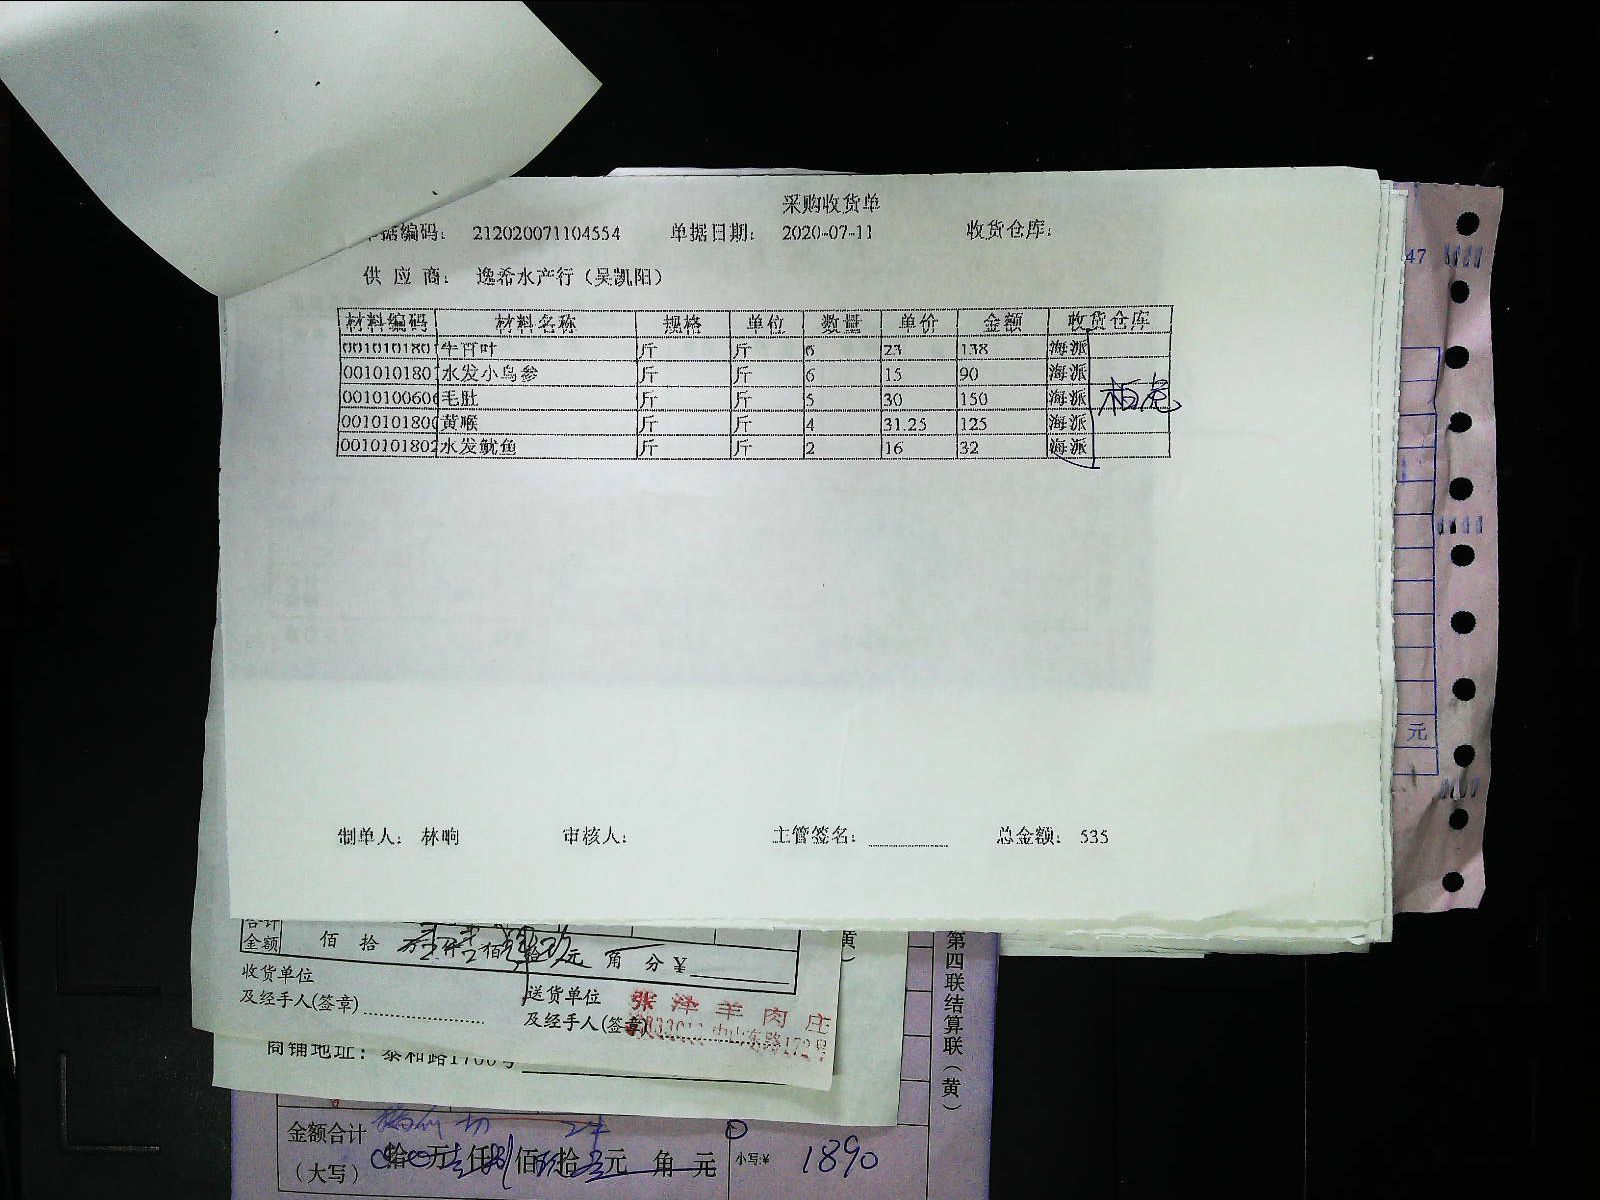 采购收货单
据编码: 212020071104554 单据日期: 2020-07-11 收货仓库:
供 应 商: 逸希水产行（吴凯阳）
材料编码 材料名称 规格 单位 数量 单价 金额 收货仓库
001010180 牛百叶 斤 斤 6 23 138 海派
001010180 水发小乌参 斤 斤 6 15 90 海派
001010060 毛肚 斤 斤 5 30 150 海派
001010180 黄喉 斤 斤 4 31.25 125 海派
0010101802 水发鱿鱼 斤 斤 2 16 32 海派
制单人: 林晌 审核人: 主管签名: 总金额: 535
47
元
合计
金额 佰 拾 万 仟 佰 拾 元 角 分 ¥
收货单位
及经手人(签章)
送货单位
及经手人(签章)
张泽羊肉庄
中山东路172号
商铺地址: 泰和路1700号
黄）
第四联结算联（黄）
金额合计
（大写） 拾 万 仟 佰 拾 元 角 元 小写:¥ 1890